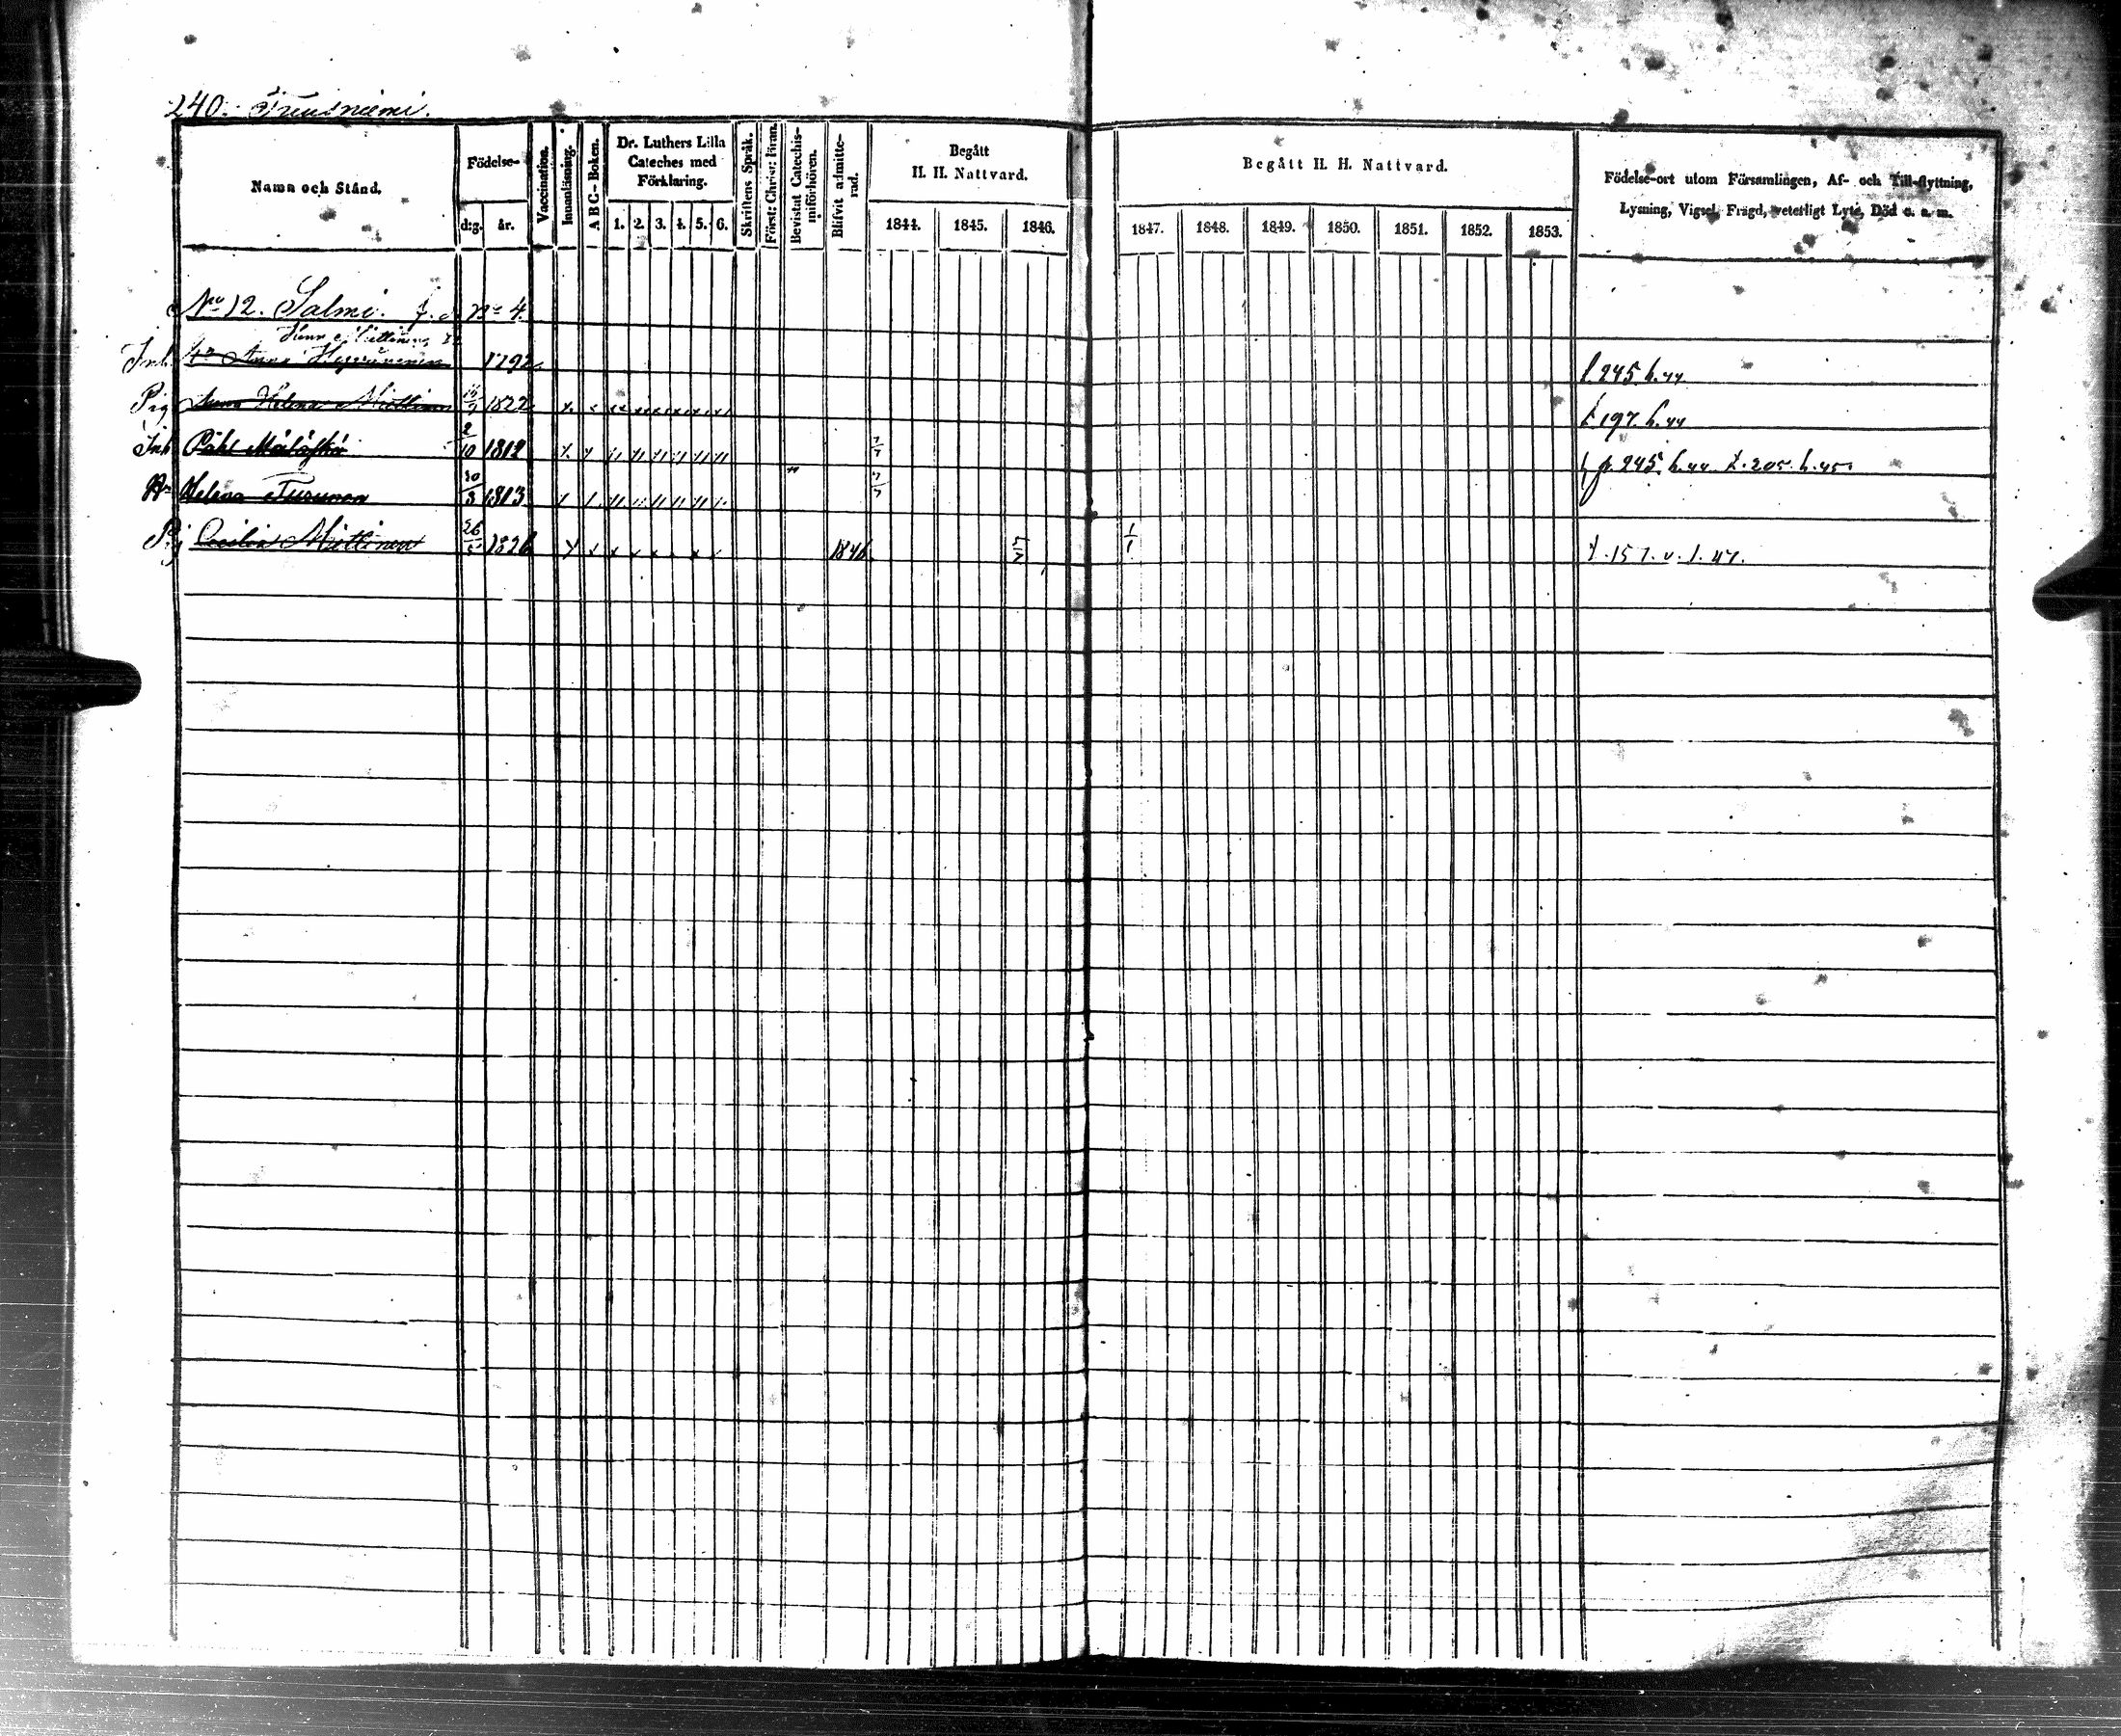 240. Tuusniemi.
Namn och Stånd.
Födelse-
d:g. år.
Vaccination.
Innanläsning.
A B C-Boken.
Dr. Luthers Lilla Cateches med Förklaring.
1. 2. 3. 4. 5. 6.
Skriftens Språk.
Först: Christ: Bevistat Catechismiförhören.
Blifvit admitterad.
Begått H. H. Nattvard.
1844. 1845. 1846.
Begått H. H. Nattvard.
1847. 1848. 1849. 1850. 1851. 1852. 1853.
Födelse-ort utom Församlingen, Af- och Till-flyttning,
Lysning, Vigsel, Frägd, veterligt Lyte, Död o. s. m.
No 12. Salmi. No 4.
Miettinens
Inh. Anna 1792 f. 245 h. 44
Pig Anna Helena Miettinen 1822 f. 197. h. 44
Inh Påhl 2/10 1812 7/7 f. 245. h. 44 f. 205. h. 45
Hr Helena Turunen 30/3 1813 7/7
Pig Cecilia Miettinen 26/5 1826 1846 1/1 f. 157. v. 1. 47.